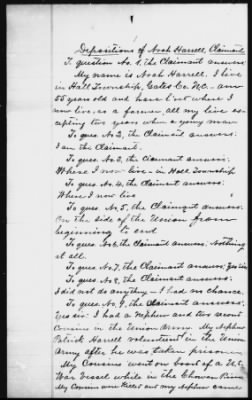 Depositions of Noah Harrell, Claimant
To question No. 1, the Claimant answers
My name is Noah Harrell. I live
in Hall Township, Gates Co. N.C. - am
55 year old and have lived where I
now live, as a farmer, all my live ex-
cepting two years when a young man
To ques No. 2, the Claimant answers:
I am the Claimant.
To ques. No. 3, the Claimant answers:
Where I now live - in Hall Township
To ques. No. 4, the Claimant answers:
Where I now live
To ques. No. 5, the Claimant answers:
On the side of the Union from
beginning to end
To ques. No. 6, the Claimant answers, Nothing
at all.
To ques. No. 7, the Claimant answers: Yes sir
To ques No. 8, the Claimant answers:
I did not do anything - I had no chance.
To ques No. 9, the Claimant answers:
Yes sir: I had a Nephew and two second
Cousins in the Union Army. My Nephew
Patrick Harrell volunteered in the Union
Army after he was taken prisoner
My Cousins went on board of a U.S.
War Vessel while in the Chowan River
My Cousins were Killed and my Nephew came